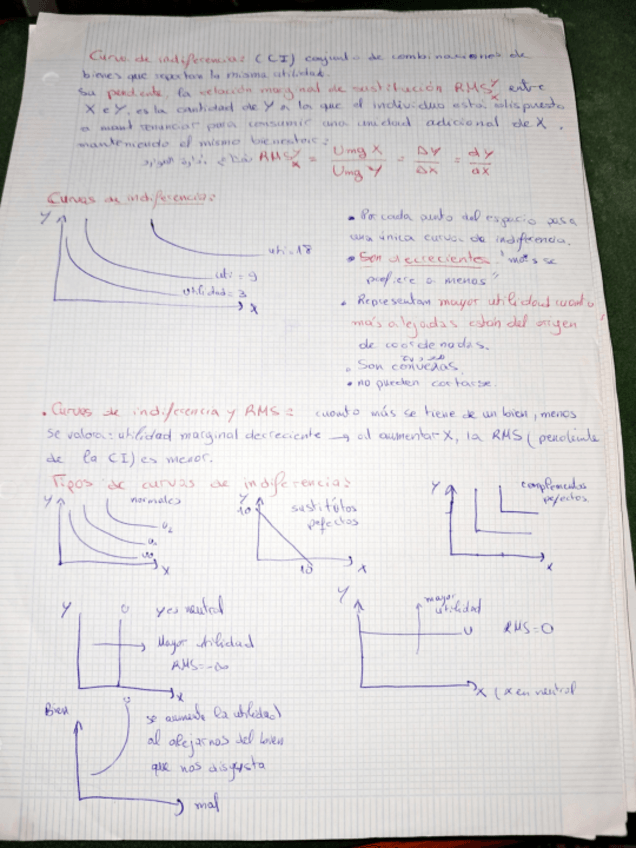 Curva de indiferencia: (CI) conjunto de combinaciones de
bienes que reportan la misma utilidad.
Su pendiente, la relación marginal de sustitución RMS y/x entre
X e Y, es la cantidad de Y a la que el individuo está dispuesto
a renunciar para consumir una unidad adicional de X,
manteniendo el mismo bienestar:
RMS y/x = Umg X / Umg Y = ΔY / ΔX = dY / dX
Curvas de indiferencia:
Y
uti=18
uti=9
utilidad=3
X
• Por cada punto del espacio pasa
una única curva de indiferencia.
• Son decrecientes "más se
prefiere a menos"
• Representan mayor utilidad cuanto
más alejadas están del origen
de coordenadas.
• Son convexas.
• no pueden cortarse.
• Curvas de indiferencia y RMS: cuanto más se tiene de un bien, menos
se valora: utilidad marginal decreciente → al aumentar X, la RMS (pendiente
de la CI) es menor.
Tipos de curvas de indiferencia:
Y
normales
U2
X
Y
10
sustitutos
pefectos
10
X
Y
complementos
pefectos
X
Y
U
Y es neutral
Mayor utilidad
RMS=-∞
X
Y
mayor
utilidad
U
RMS=0
X (X en neutral
Bien
U
se aumenta la utilidad
al alejarnos del bien
que nos disgusta
mal